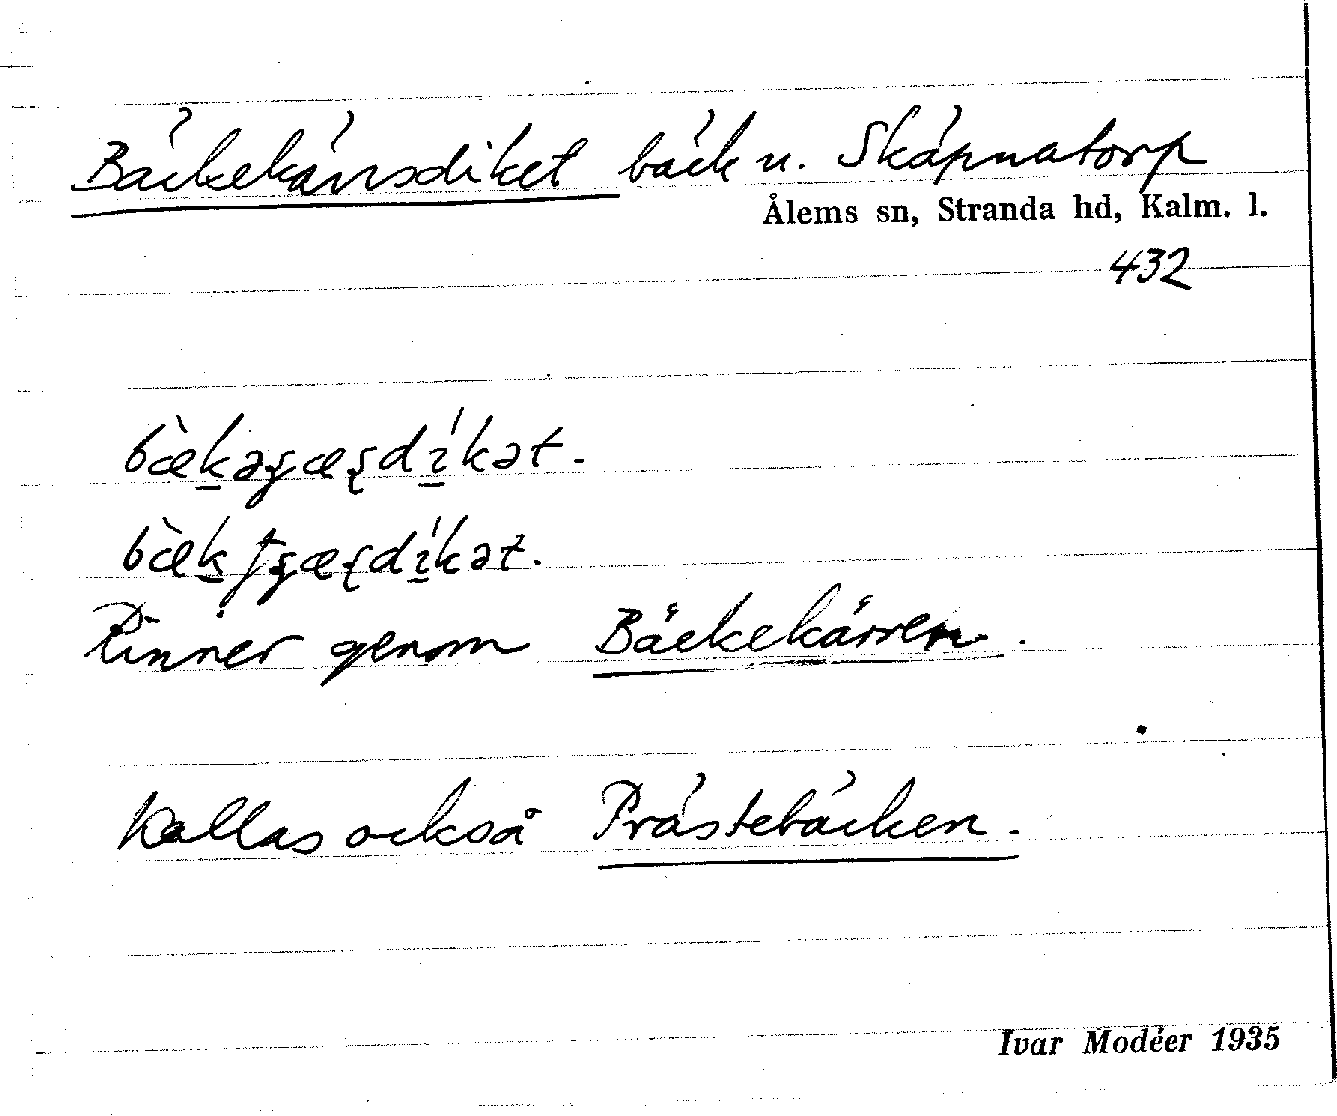 Bäckekärrsdiket bäck u. Skäpnatorp
Ålems sn, Stranda hd, Kalm. l.
432
Rinner genom Bäckekärren.
Kallas också Prästebäcken.
Ivar Modéer 1935